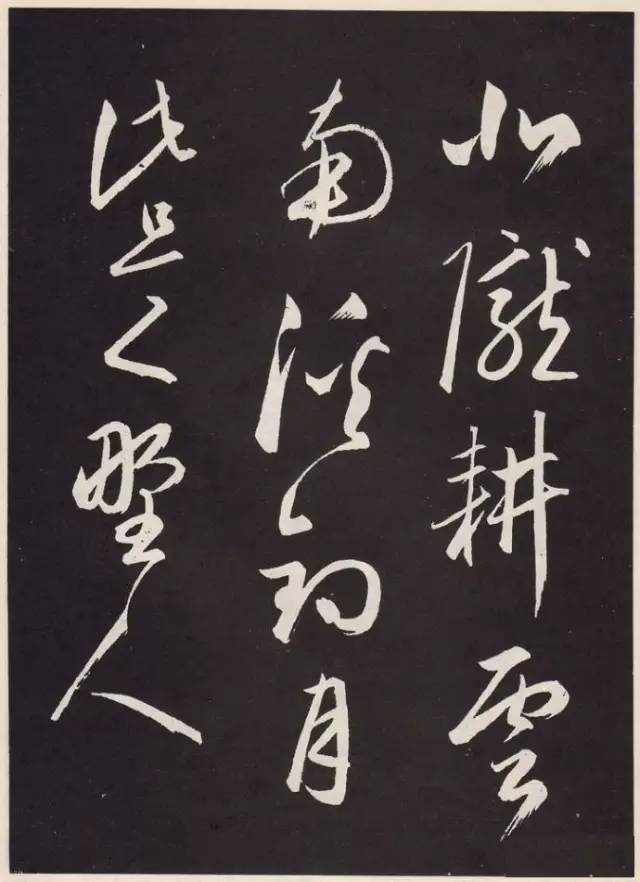 北隴耕雲
南溪釣月
此是野人